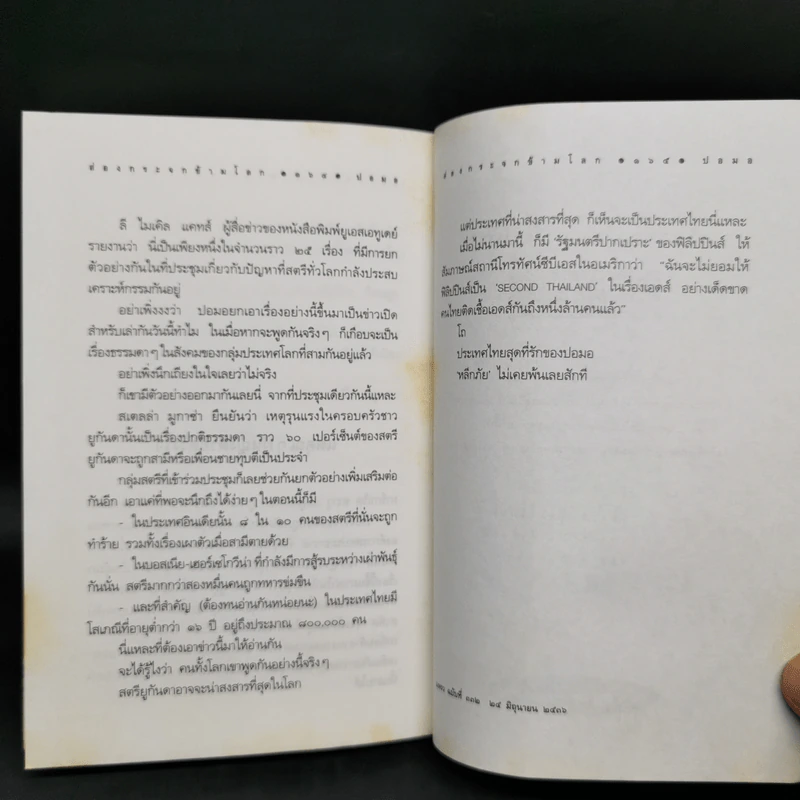 ส่องกระจกข้ามโลก ๑๑๖๔๑ ปอมอ
ลี ไมเคิล แคทส์ ผู้สื่อข่าวของหนังสือพิมพ์ยูเอสเอทูเดย์
รายงานว่า นี่เป็นเพียงหนึ่งในจำนวนราว ๒๕ เรื่อง ที่มีการยก
ตัวอย่างกันในที่ประชุมเกี่ยวกับปัญหาที่สตรีทั่วโลกกำลังประสบ
เคราะห์กรรมกันอยู่
อย่าเพิ่งงงว่า ปอมอยกเอาเรื่องอย่างนี้ขึ้นมาเป็นข่าวเปิด
สำหรับเล่ากันวันนี้ทำไม ในเมื่อหากจะพูดกันจริงๆ ก็เกือบจะเป็น
เรื่องธรรมดาๆ ในสังคมของกลุ่มประเทศโลกที่สามกันอยู่แล้ว
อย่าเพิ่งนึกเถียงในใจเลยว่าไม่จริง
ก็เขามีตัวอย่างออกมากันเลยนี่ จากที่ประชุมเดียวกันนี้แหละ
สเตลล่า มูกาซ่า ยืนยันว่า เหตุรุนแรงในครอบครัวชาว
ยูกันดานั้นเป็นเรื่องปกติธรรมดา ราว ๖๐ เปอร์เซ็นต์ของสตรี
ยูกันดาจะถูกสามีหรือเพื่อนชายทุบตีเป็นประจำ
กลุ่มสตรีที่เข้าร่วมประชุมก็เลยช่วยกันยกตัวอย่างเพิ่มเสริมต่อ
กันอีก เอาแค่ที่พอจะนึกถึงได้ง่ายๆ ในตอนนี้ก็มี
- ในประเทศอินเดียนั้น ๘ ใน ๑๐ คนของสตรีที่นั่นจะถูก
ทำร้าย รวมทั้งเรื่องเผาตัวเมื่อสามีตายด้วย
- ในบอสเนีย-เฮอร์เซโกวีน่า ที่กำลังมีการสู้รบระหว่างเผ่าพันธุ์
กันนั่น สตรีมากกว่าสองหมื่นคนถูกทหารข่มขืน
- และที่สำคัญ (ต้องทนอ่านกันหน่อยนะ) ในประเทศไทยมี
โสเภณีที่อายุต่ำกว่า ๑๖ ปี อยู่ถึงประมาณ ๘๐๐,๐๐๐ คน
นี่แหละที่ต้องเอาข่าวนี้มาให้อ่านกัน
จะได้รู้ไงว่า คนทั้งโลกเขาพูดกันอย่างนี้จริงๆ
สตรียูกันดาอาจจะน่าสงสารที่สุดในโลก
ส่องกระจกข้ามโลก ๑๑๖๕๑ ปอมอ
แต่ประเทศที่น่าสงสารที่สุด ก็เห็นจะเป็นประเทศไทยนี่แหละ
เมื่อไม่นานมานี้ ก็มี 'รัฐมนตรีปากเปราะ' ของฟิลิปปินส์ ให้
สัมภาษณ์สถานีโทรทัศน์ซีบีเอสในอเมริกาว่า "ฉันจะไม่ยอมให้
ฟิลิปปินส์เป็น 'SECOND THAILAND' ในเรื่องเอดส์ อย่างเด็ดขาด
คนไทยติดเชื้อเอดส์กันถึงหนึ่งล้านคนแล้ว"
โถ
ประเทศไทยสุดที่รักของปอมอ
'หลีกภัย' ไม่เคยพ้นเลยสักที
ฉบับที่ ๓๓๒ ๒๔ มิถุนายน ๒๕๓๖